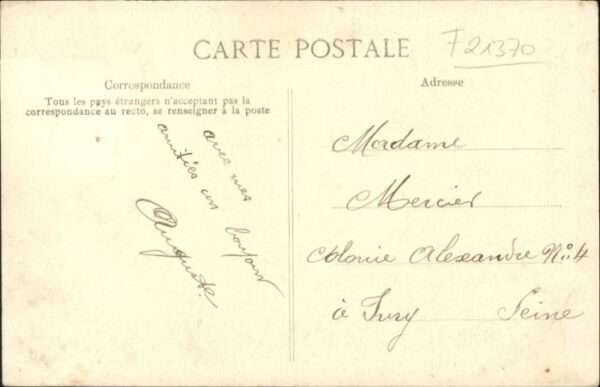 CARTE POSTALE
F21370
Correspondance
Tous les pays étrangers n'acceptant pas la
correspondance au recto, se renseigner à la poste
avec mes
amitiés un bonjour
Auguste.
Adresse
Madame
Mercier
Colonie Alexandre No: 4
à Ivry Seine